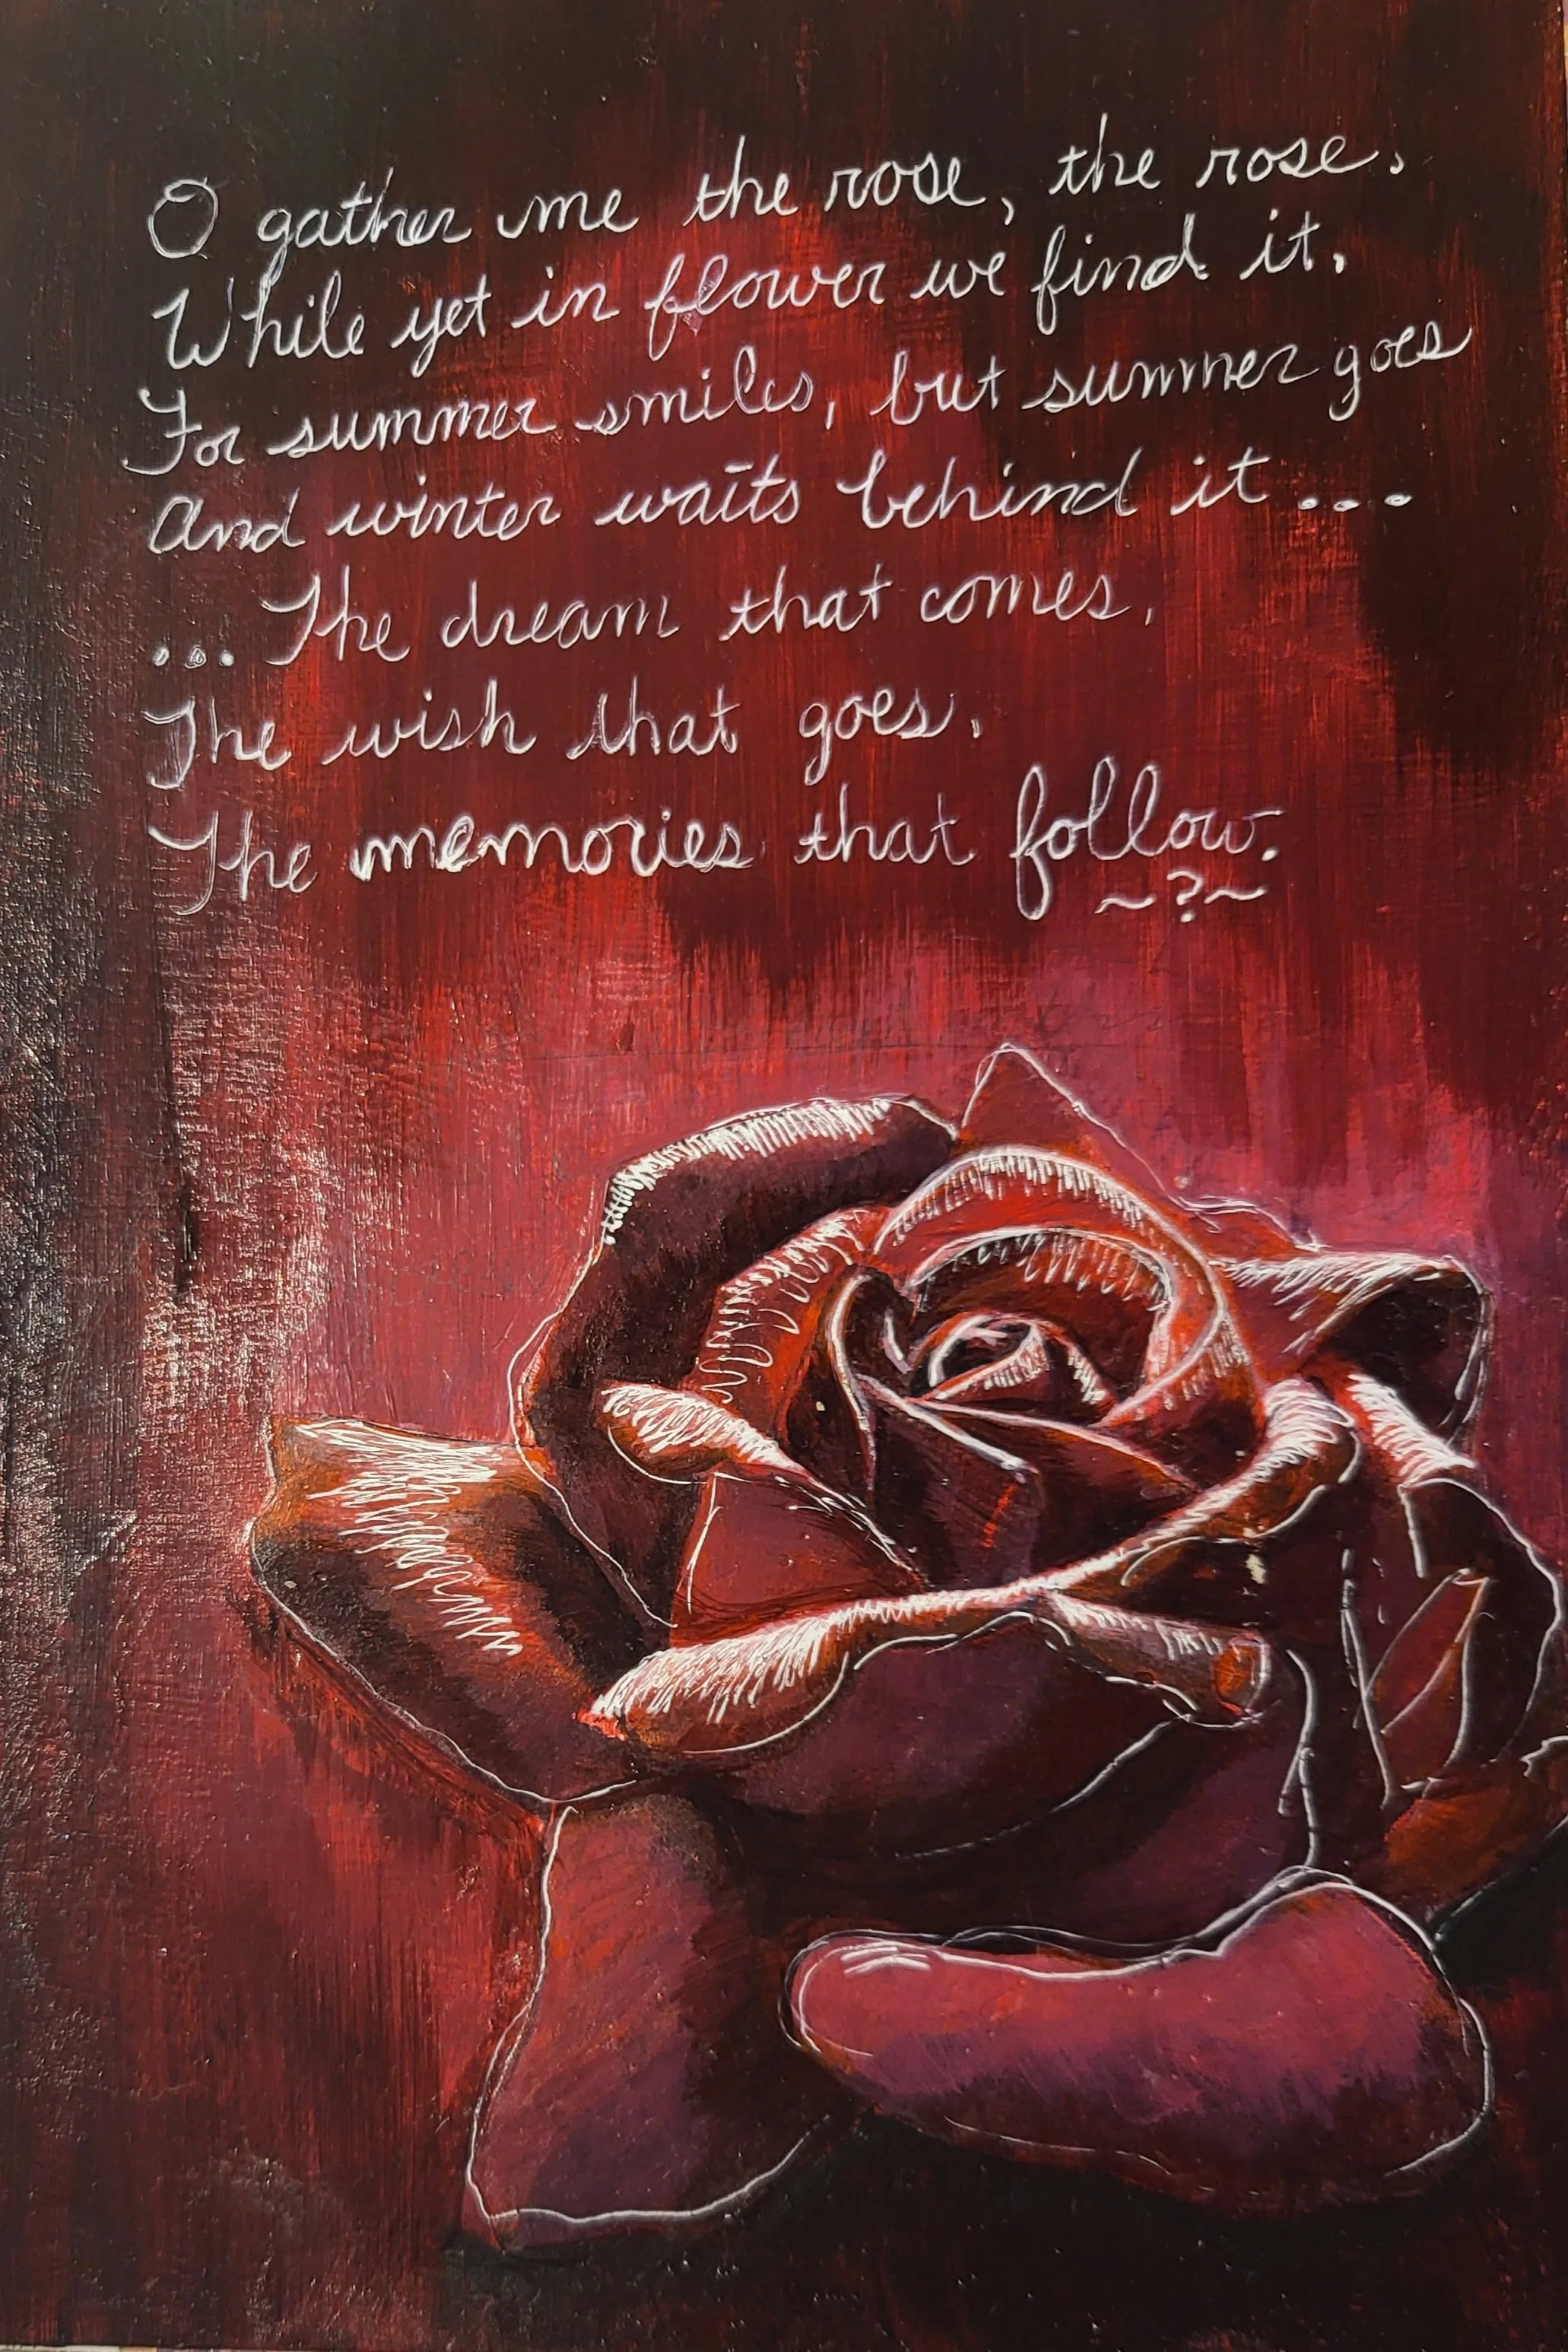 O gather me the rose, the rose,
While yet in flower we find it,
For summer smiles, but summer goes
And winter waits behind it...
...The dream that comes,
The wish that goes,
The memories that follow.
~?~